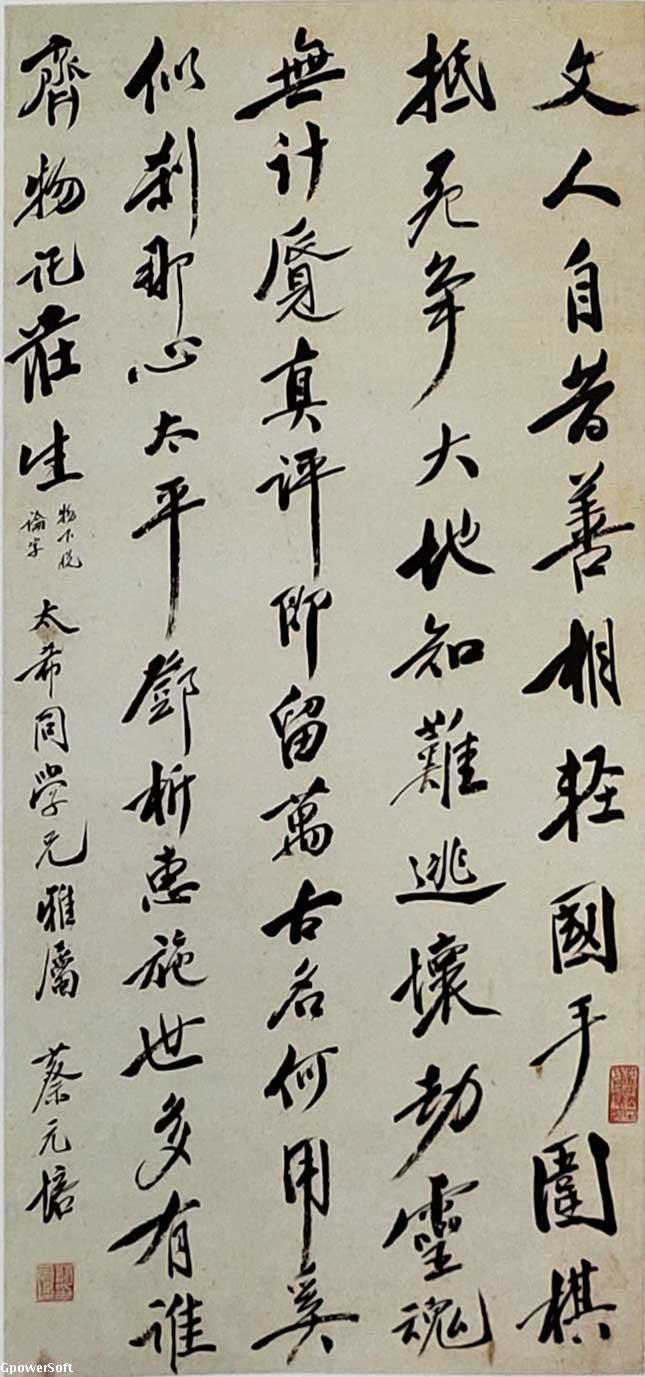 文人自昔善相輕國手圍棋
抵死爭大地知難逃壞劫靈魂
無計覓真評即留萬古名何用奚
似刹那心太平鄧析惠施世多有誰
齊物託莊生
物下脫
論字
太希同學兄雅屬 蔡元培
GpowerSoft